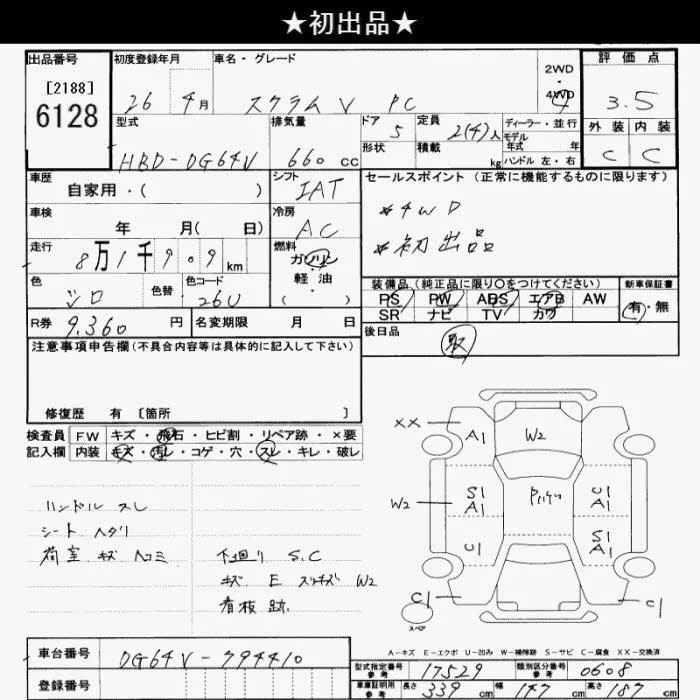 ★初出品★
出品番号 初度登録年月 車名・グレード 2WD・4WD 評価点
[2188]
6128
26 4月 スクラムV PC 4 3.5
型式 排気量 ドア 5 定員 2(4)人 ディーラー・並行 外装 内装
HBD-DG64V 660 cc 形状 積載 kg モデル年式 年 C C
ハンドル 左・右
車歴 シフト セールスポイント(正常に機能するものに限ります)
自家用・( ) IAT
車検 冷房 *4WD
年 月( 日) AC
走行 燃料 *初出品
8万1千909km ガソリン・軽油
( )
色 色替 色コード 装備品(純正品に限り〇をつけてください) 新車保証書
シロ 26U PS PW ABS エアB AW 有・無
SR ナビ TV カワ
R券 9,360円 名変期限 月 日 後日品
取
注意事項申告欄(不具合内容等は具体的に記入して下さい)
修復歴 有 [箇所 ]
検査員 FW キズ・飛石・ヒビ割・リペア跡・×要
記入欄 内装 キズ・汚レ・コゲ・穴・スレ・キレ・破レ
ハンドル スレ
シート ヘタリ
荷室 キズ ヘコミ 下廻り S.C
キズ E スリキズ W2
看板跡
XX A1 W2
W2 S1 A1 U1 A1
U1 S1 A1
C1 C1
スペア
A-キズ E-エクボ U-凹み W-補修跡 S-サビ C-腐食 XX-交換済
車台番号 DG64V-794410 型式指定番号 参考 17529 類別区分番号 参考 0608
登録番号 車庫証明用 参考 長さ 339 cm 幅 147 cm 高さ 187 cm